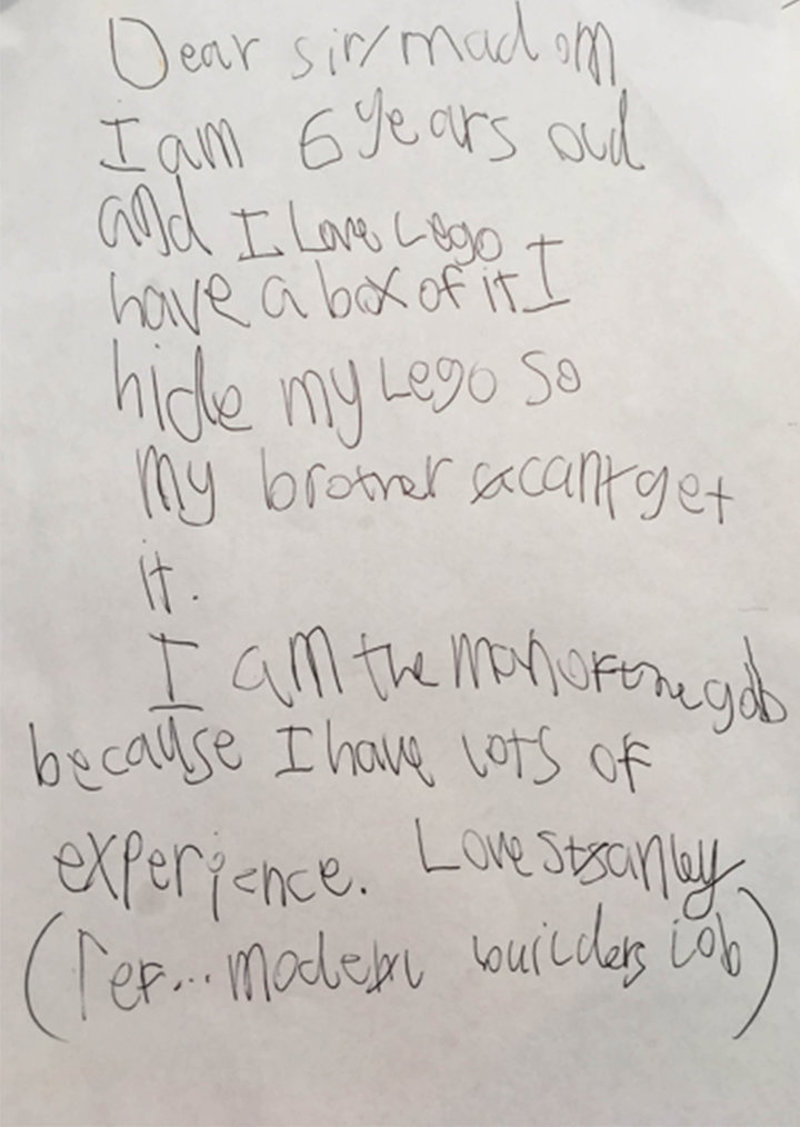 Dear sir/madom
I am 6 years oud
and I Love Lego
have a box of it I
hide my Lego so
my brother cant get
it.
I am the man of the gob
because I have lots of
experience. Love Stanley
(Ref... model builders iob)